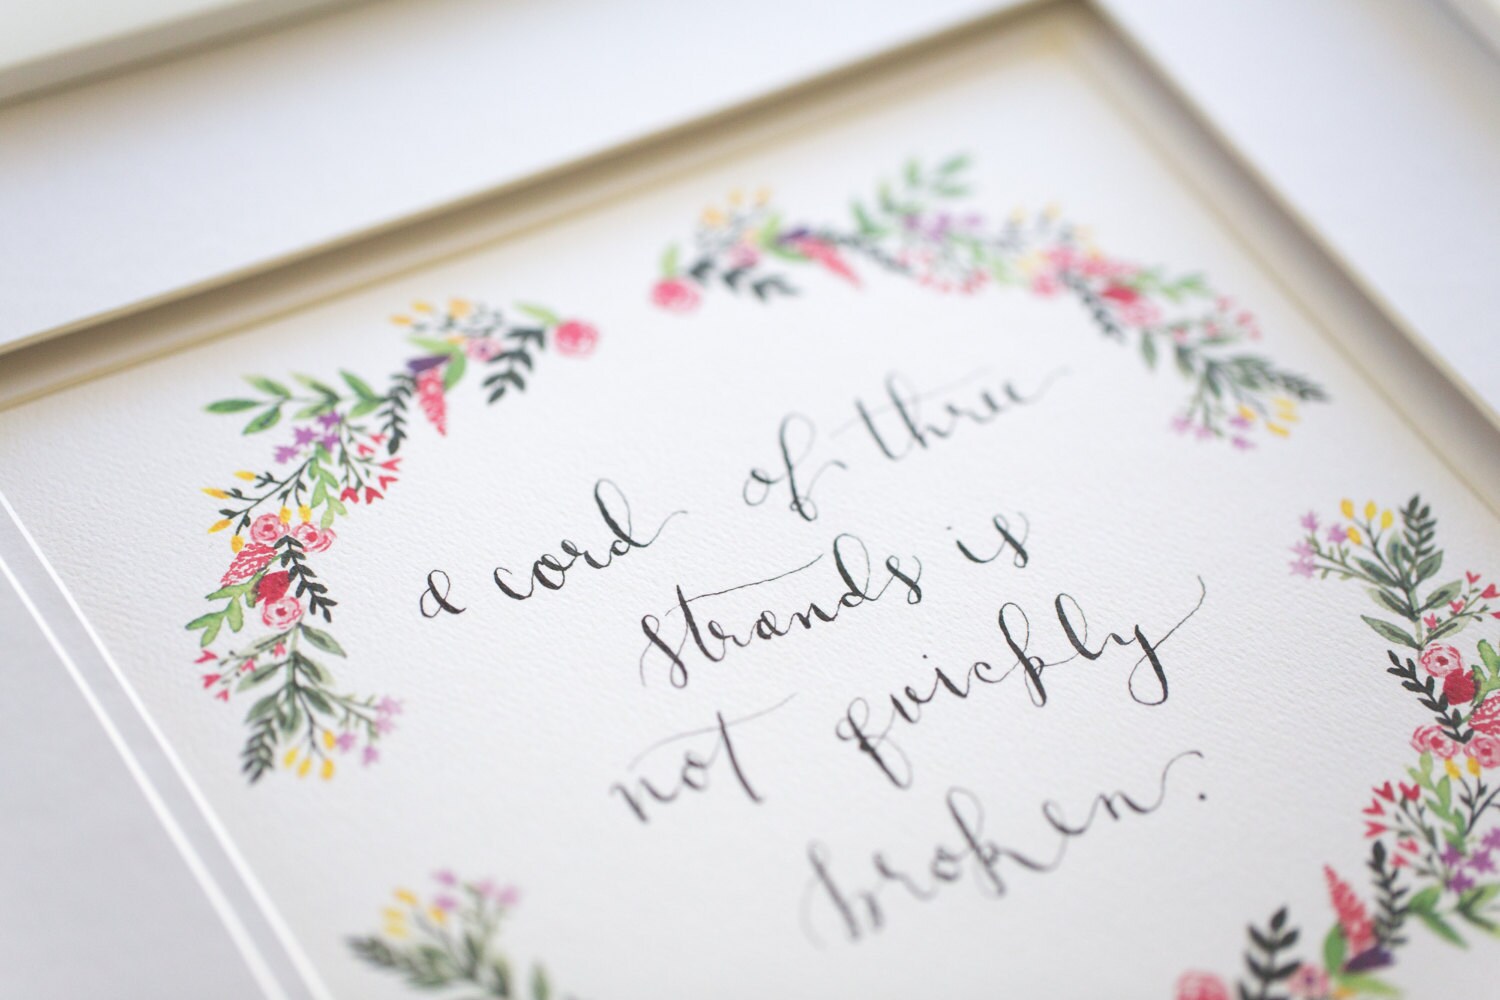 a cord of three
strands is
not quickly
broken.